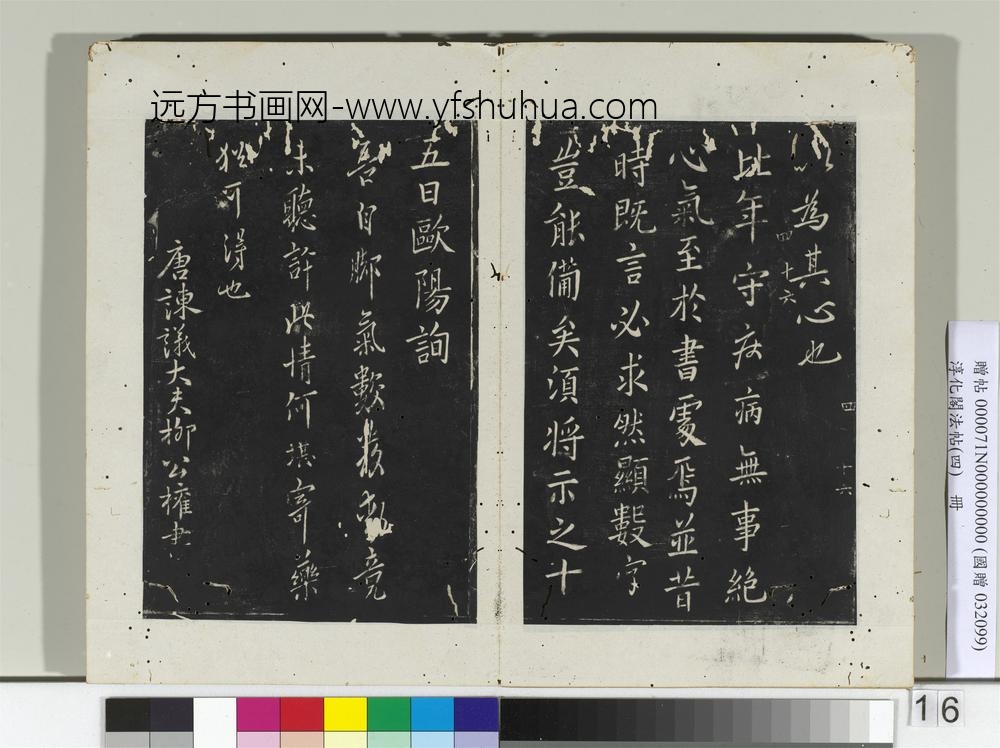 远方书画网-www.yfshuhua.com
以為其心也
四 十六
比年守疾病無事絕
心氣至於書處焉並昔
時既言必求然顯數字
豈能備矣須將示之十
四 十六
五日歐陽詢
吾自腳氣數發動竟
未聽許此情何堪寄藥
猶可得也
唐諫議大夫柳公權書
贈帖 000071N000000000 (國贈 032099)
淳化閣法帖(四) 冊
16